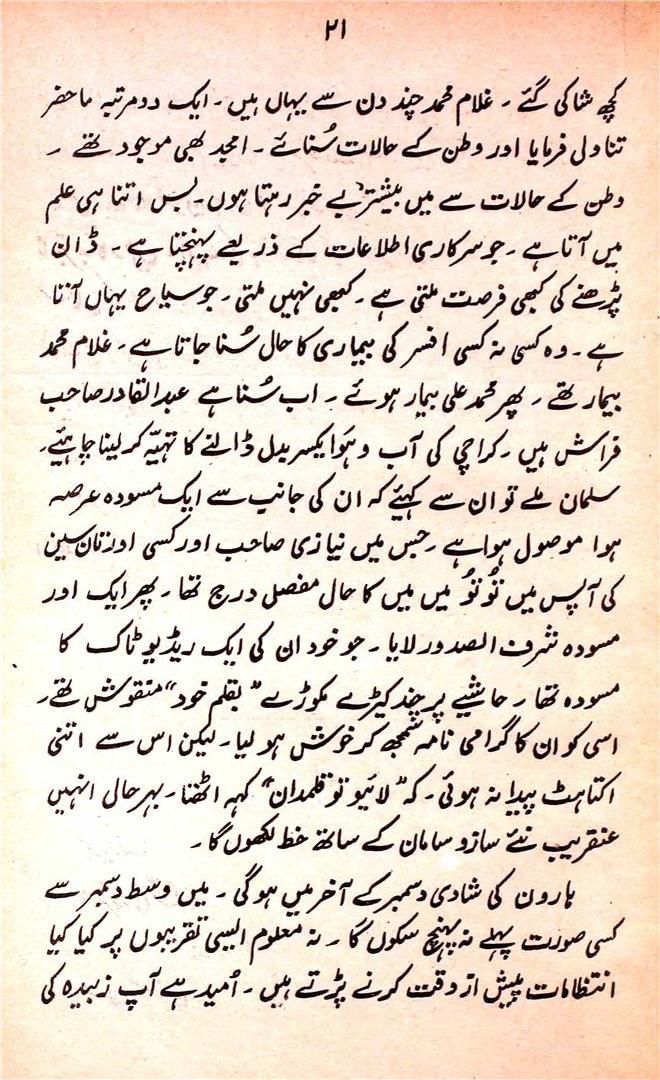 ۲۱
کچھ شاکی گئے ۔ غلام محمد چند دن سے یہاں ہیں ۔ ایک دو مرتبہ ماحضر
تناول فرمایا اور وطن کے حالات سُنائے ۔ امجد بھی موجود تھے ۔
وطن کے حالات سے میں بیشتر بے خبر رہتا ہوں ۔ بس اتنا ہی علم
میں آتا ہے ۔ جو سرکاری اطلاعات کے ذریعے پہنچتا ہے ۔ ڈان
پڑھنے کی کبھی فرصت ملتی ہے ۔ کبھی نہیں ملتی ۔ جو سیاح یہاں آتا
ہے ۔ وہ کسی نہ کسی افسر کی بیماری کا حال سُنا جاتا ہے ۔ غلام محمد
بیمار تھے ۔ پھر محمد علی بیمار ہوئے ۔ اب سُنا ہے عبدالقادر صاحب
فراش ہیں ۔ کراچی کی آب و ہَوا یکسر بدل ڈالنے کا تہیّہ کر لینا چاہیئے ۔
سلمان ملے تو ان سے کہیئے کہ ان کی جانب سے ایک مسودہ عرصہ
ہوا موصول ہوا ہے ۔ جس میں نیازی صاحب اور کسی اوزنان سین
کی آپس میں تُو تُو میں میں کا حال مفصل درج تھا ۔ پھر ایک اور
مسودہ شرف الصدور لایا ۔ جو خود ان کی ایک ریڈیو ٹاک کا
مسودہ تھا ۔ حاشیے پر چند کیڑے مکوڑے ”بقلم خود“ منقوش تھے ۔
اسی کو ان کا گرامی نامہ سمجھ کر خوش ہو لیا ۔ لیکن اس سے اتنی
اکتاہٹ پیدا نہ ہوئی ۔ کہ ”لائیو تو قلمدان“ کہہ اٹھتا ۔ بہرحال انہیں
عنقریب نئے سازو سامان کے ساتھ خط لکھوں گا ۔
ہارون کی شادی دسمبر کے آخر میں ہو گی ۔ میں وسط دسمبر سے
کسی صورت پہلے نہ پہنچ سکوں گا ۔ نہ معلوم ایسی تقریبوں پر کیا کیا
انتظامات پیش از وقت کرنے پڑتے ہیں ۔ اُمید ہے آپ زبیدہ کی